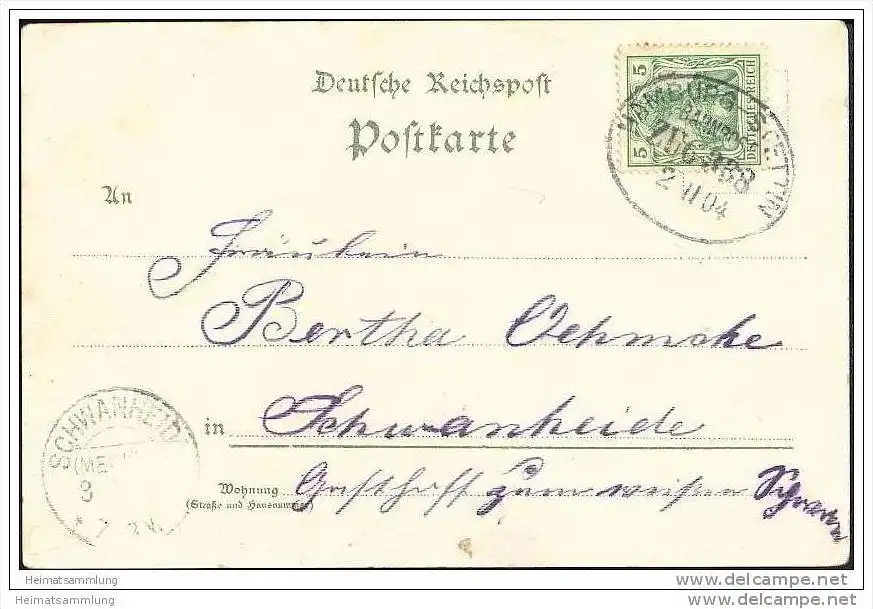 Deutsche Reichspost
Postkarte
5
5
DEUTSCHES REICH
HAMBURG-STETTIN
BAHNPOST
ZUG 368
2 11 04
An
Fräulein
Bertha Oehmcke
in Schwanheide
Wohnung Gasthoff zum weißen Schwan
(Straße und Hausnummer)
SCHWANHEIDE
(ME
3
Heimatsammlung
Heimatsammlung
www.delcampe.net
www.delcampe.net